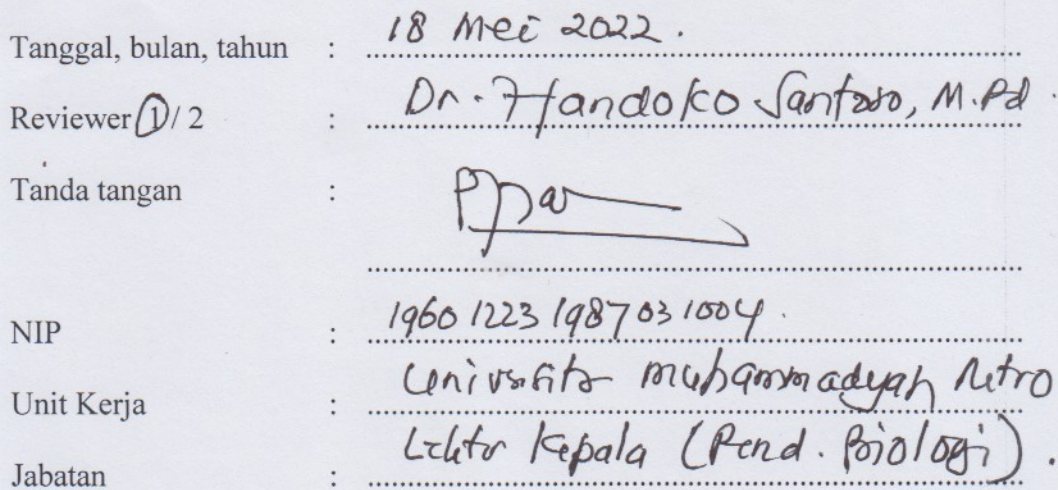 Tanggal, bulan, tahun : 18 Mei 2022.
Reviewer 1 / 2 : Dr. Handoko Santoso, M.Pd.
Tanda tangan :
NIP : 19601223 198703 1004.
Unit Kerja : Universitas Muhammadyah Metro
Jabatan : Lektor Kepala (Pend. Biologi).